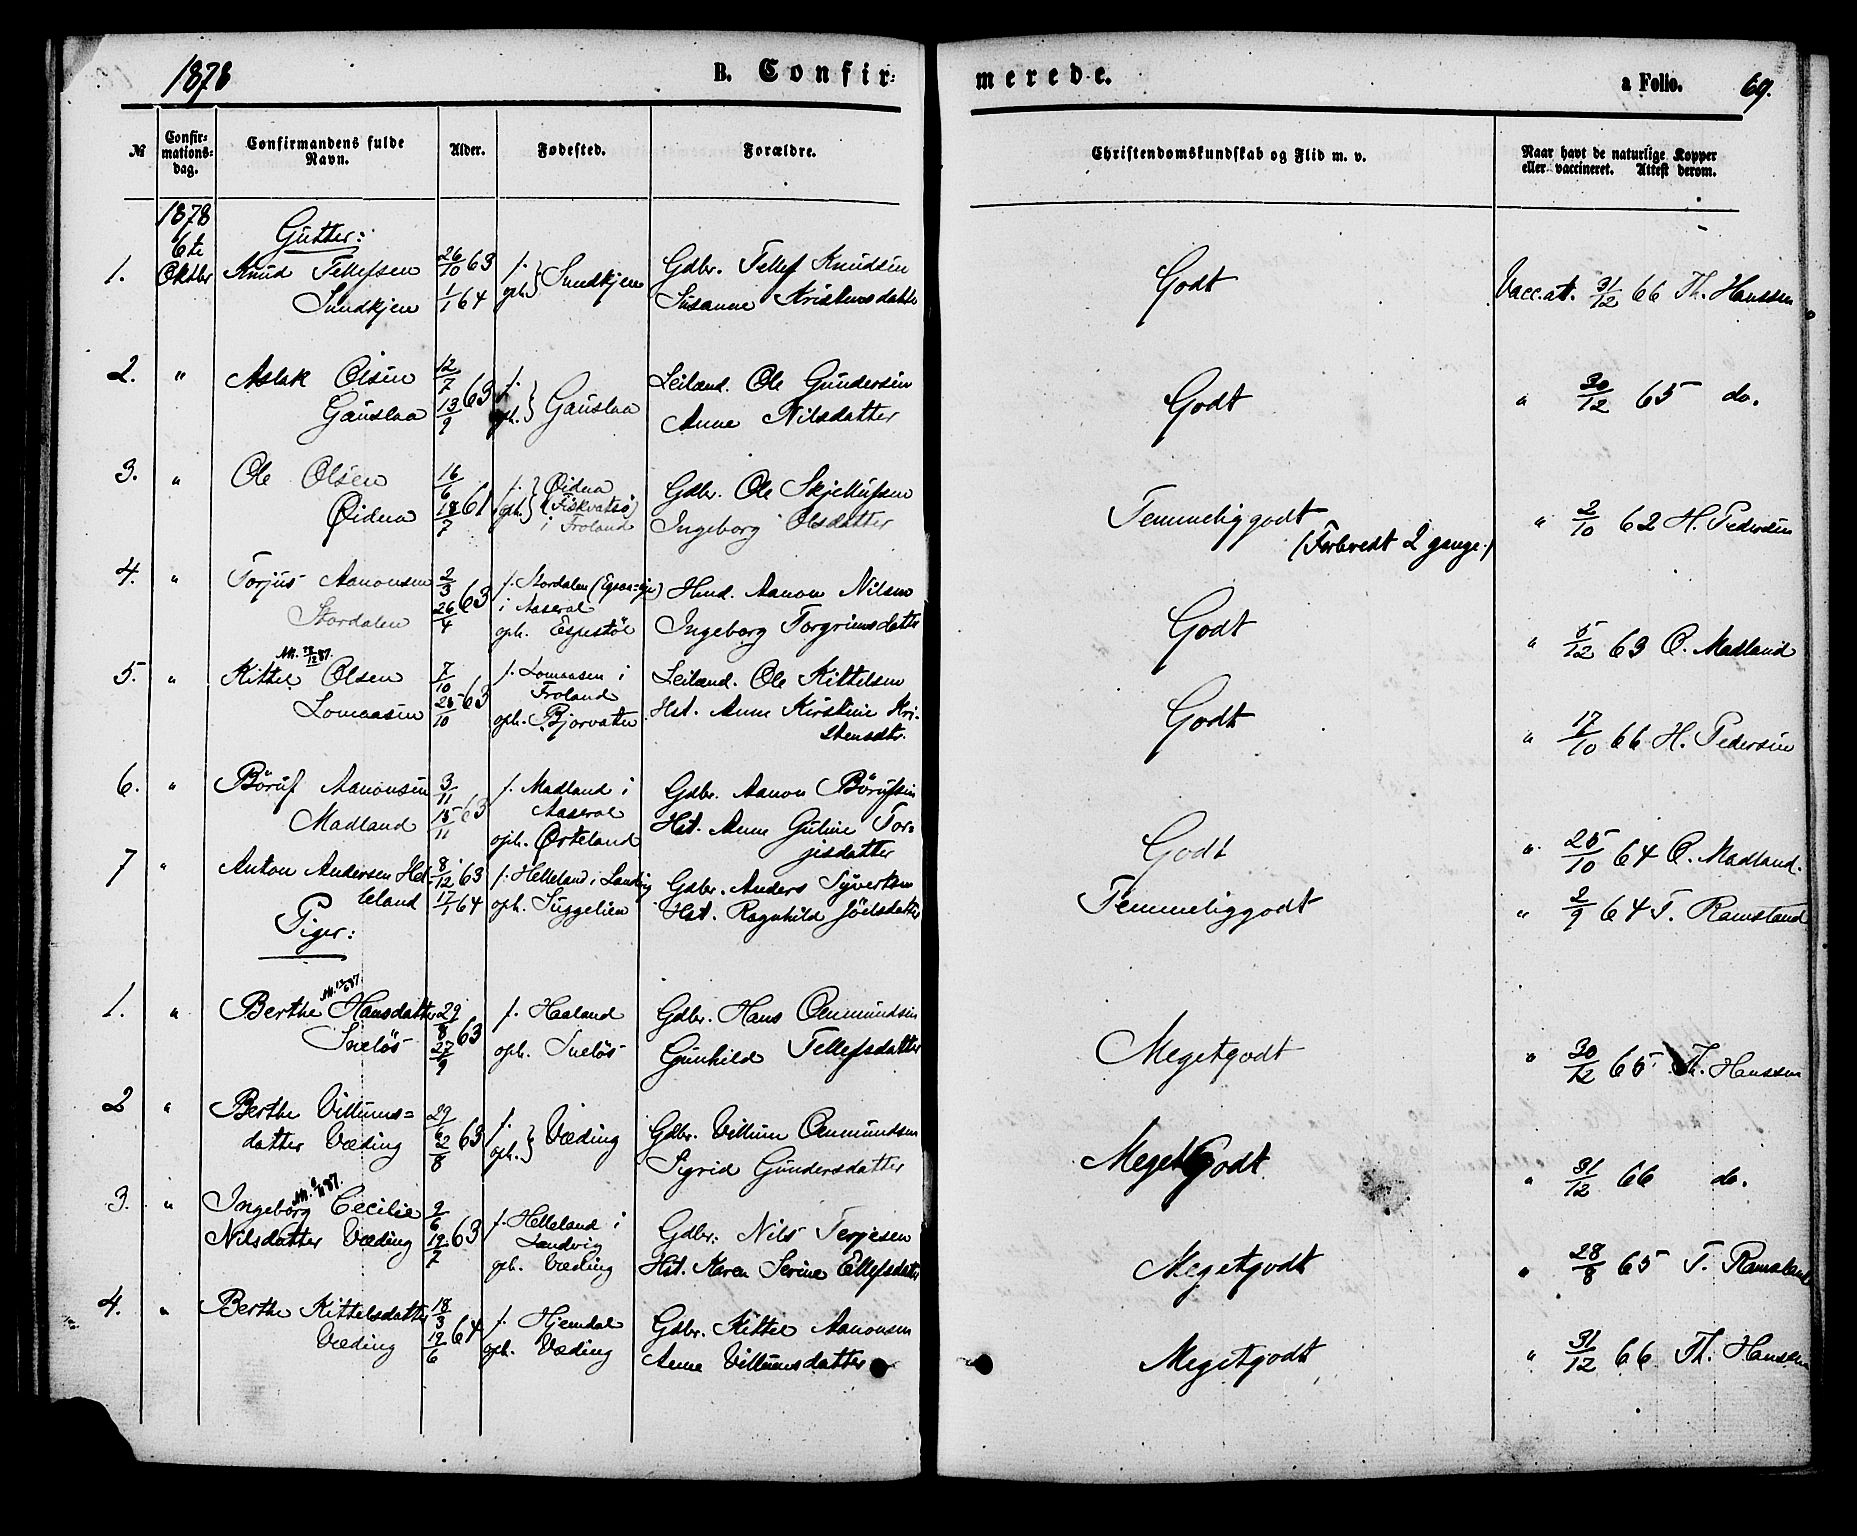 1878 B. Confir= merede. a Folio. 69.
№ Confir=mations=dag. Confirmandens fulde Navn. Alder. Fødested. Forældre. Christendomskundskab og Flid m. v. Naar havt de naturlige Kopper eller vaccineret. Attest derom.
1878 Gutter:
6te
1. Oktbr Knud Tellefsen 26/10 63 f. } Sundkjen Gdbr. Tellef Knudsen Godt Vacc.at. 31/12 66 Th. Hanssen
Sundkjen 1/1 64 oph. Susanne Kristensdatter
2. " Aslak Olsen 12/7 63 f. } Gauslaa Leilænd. Ole Gundersen Godt " 30/12 65 do.
Gauslaa 13/9 oph. Anne Nilsdatter
3. " Ole Olsen 16/6 61 f. } Øidna Gdbr. Ole Skjellufsen Temmeliggodt " 2/10 62 H. Pedersen
Øidna 18/7 oph. (Fiskvatn) i Froland Ingeborg Olsdatter (Forberedt 2 gange.)
4. " Torjus Aanonsen 2/3 63 f. Stordalen i Aaseral Hmd. Aanon Nilsen Godt " 5/12 63 O. Madland
Stordalen 26/4 oph. Espestøl Ingeborg Torgrimsdatter
5. " Kittel Olsen 7/10 63 f. Lomaasen i Froland Leilænd. Ole Kittelsen Godt " 17/10 66 H. Pedersen
Lomaasen 25/10 oph. Bjorvatn Hst. Anne Kirstine Kri-
stensdtr.
6. " Böruf Aanonsen 3/11 63 f. Madland i Aaseral Gdbr. Aanon Börufsen Godt " 25/10 64 O. Madland.
Madland 15/11 oph. Ørteland Hst. Anne Guline Tor=
jisdatter
7 " Anton Andersen Hel= 8/12 63 f. Helleland i Landvig Gdbr. Anders Syvertsen Temmeliggodt " 2/9 64 T. Ramsland
leland 17/1 64 oph. Suggelien Hst. Ragnhild Jöelsdatter
Piger:
1. " Berthe Hansdatter 29/8 63 f. Haaland Gdbr. Hans Oenmundsen Megetgodt " 30/12 65 Th. Hanssen
Sneløs 27/9 oph. Sneløs Gunhild Tellefsdatter
2 " Berthe Villums= 29/6 63 f. } Væding Gdbr. Villum Oenmundsen Megetgodt " 31/12 66 do.
datter Væding 2/8 oph. Sigrid Gundersdatter
3. " Ingeborg Cecilie 9/6 63 f. Helleland i Landvig Gdbr. Nils Terjesen Megetgodt " 28/8 65 T. Ramsland
Nilsdatter Væding 19/7 oph. Væding Hst. Karen Serine Ellefsdatter
4. " Berthe Kittelsdatter 18/3 64 f. Hjemdal Gdbr. Kittel Aanonsen Megetgodt " 31/12 66 Th. Hansen
Væding 19/6 oph. Væding Anne Villumsdatter